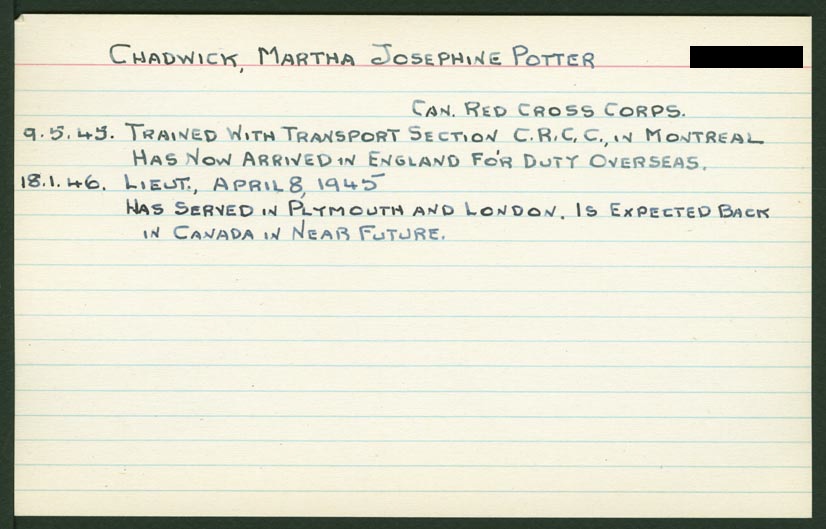 CHADWICK, MARTHA JOSEPHINE POTTER
CAN. RED CROSS CORPS.
9.5.45. TRAINED WITH TRANSPORT SECTION C.R.C.C., IN MONTREAL
HAS NOW ARRIVED IN ENGLAND FOR DUTY OVERSEAS.
18.1.46. LIEUT., APRIL 8, 1945
HAS SERVED IN PLYMOUTH AND LONDON. IS EXPECTED BACK
IN CANADA IN NEAR FUTURE.